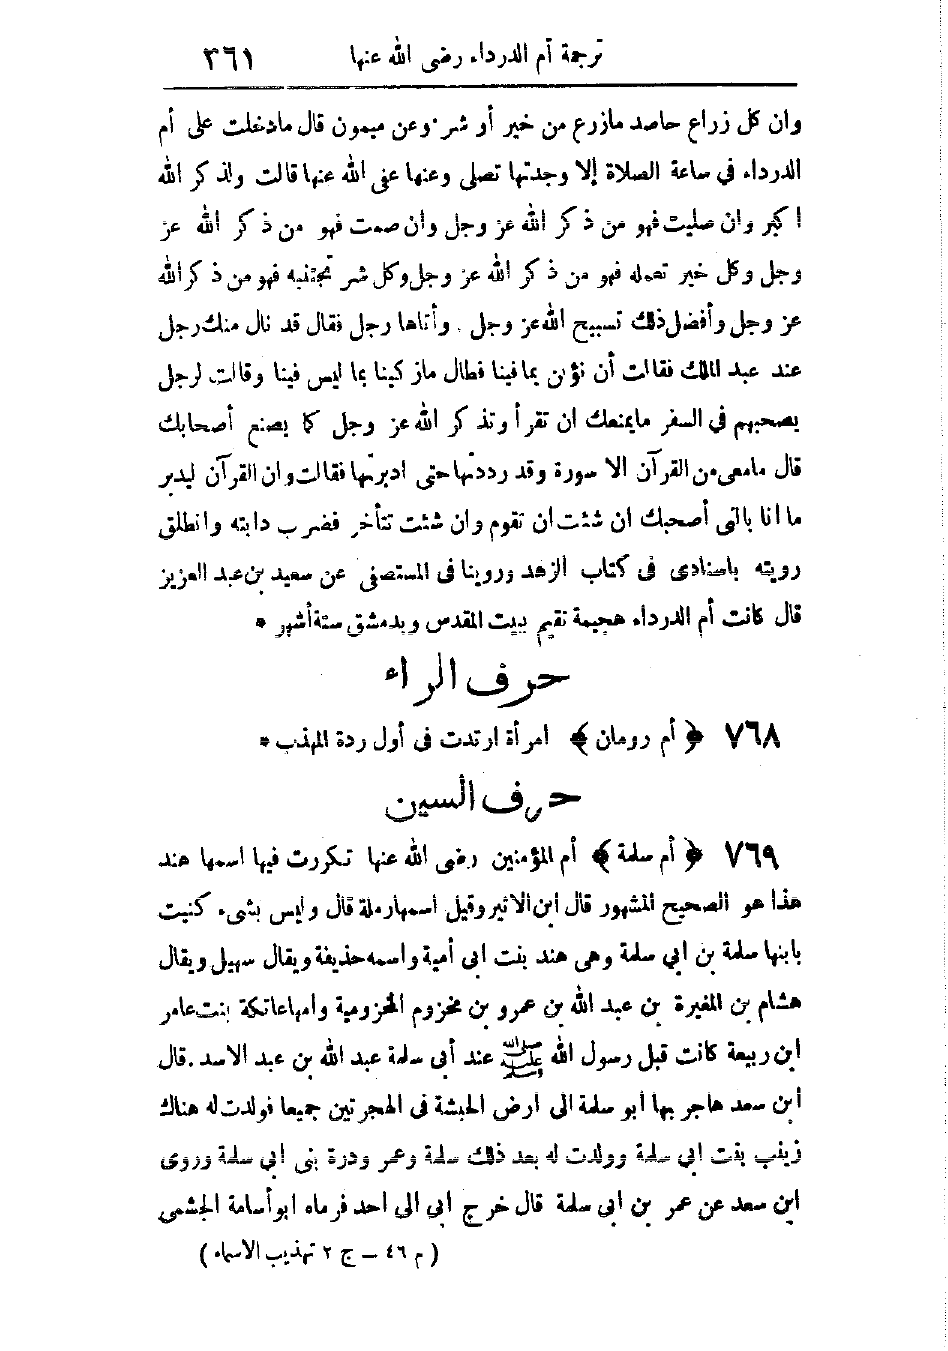 ترجمة أم الدرداء رضى الله عنها ٣٦١
وان كل زراع حاصد مازرع من خير أو شر وعن ميمون قال مادخلت على أم
الدرداء في ساعة الصلاة إلا وجدتها تصلى وعنها عنى الله عنها قالت ولذكر الله
اكبر وان صليت فهو من ذكر الله عز وجل وان صمت فهو من ذكر الله عز
وجل وكل خير تعمله فهو من ذكر الله عز وجل وكل شر تجتنبه فهو من ذكر الله
عز وجل وأفضل ذلك تسبيح الله عز وجل . وأتاها رجل فقال قد نال منك رجل
عند عبد الملك فقالت أن نؤبن بما فينا فطال مازكينا بما ليس فينا وقالت لرجل
يصحبهم في السفر مايمنعك ان تقرأ وتذكر الله عز وجل كما يصنع أصحابك
قال مامعى من القرآن الا سورة وقد رددتها حتى ادبرتها فقالت وان القرآن ليدبر
ما انا بالتى أصحبك ان شئت ان تقوم وان شئت تتأخر فضرب دابته وانطلق
رويته باسنادى فى كتاب الزهد وروينا فى المستصفى عن سعيد بن عبد العزيز
قال كانت أم الدرداء هجيمة تقيم ببيت المقدس وبدمشق ستة أشهر *
حرف الراء
٧٦٨ ﴿ أم رومان ﴾ امرأة ارتدت فى أول ردة المهذب *
حرف السين
٧٦٩ ﴿ أم سلمة ﴾ أم المؤمنين رضى الله عنها تكررت فيها اسمها هند
هذا هو الصحيح المشهور قال ابن الاثير وقيل اسمها رملة قال وليس بشىء كنيت
بابنها سلمة بن ابي سلمة وهى هند بنت ابى أمية واسمه حذيفة ويقال سهيل ويقال
هشام بن المغيرة بن عبد الله بن عمرو بن مخزوم المخزومية وامها عاتكة بنت عامر
ابن ربيعة كانت قبل رسول الله ﷺ عند أبى سلمة عبد الله بن عبد الاسد . قال
أبن سعد هاجر بها أبو سلمة الى ارض الحبشة فى الهجرتين جميعا فولدت له هناك
زينب بنت ابي سلمة وولدت له بعد ذلك سلمة وعمر ودرة بنى ابي سلمة وروى
ابن سعد عن عمر بن ابى سلمة قال خرج ابي الى احد فرماه ابو أسامة الجشمى
( م ٤٦ – ج ٢ تهذيب الاسماء )